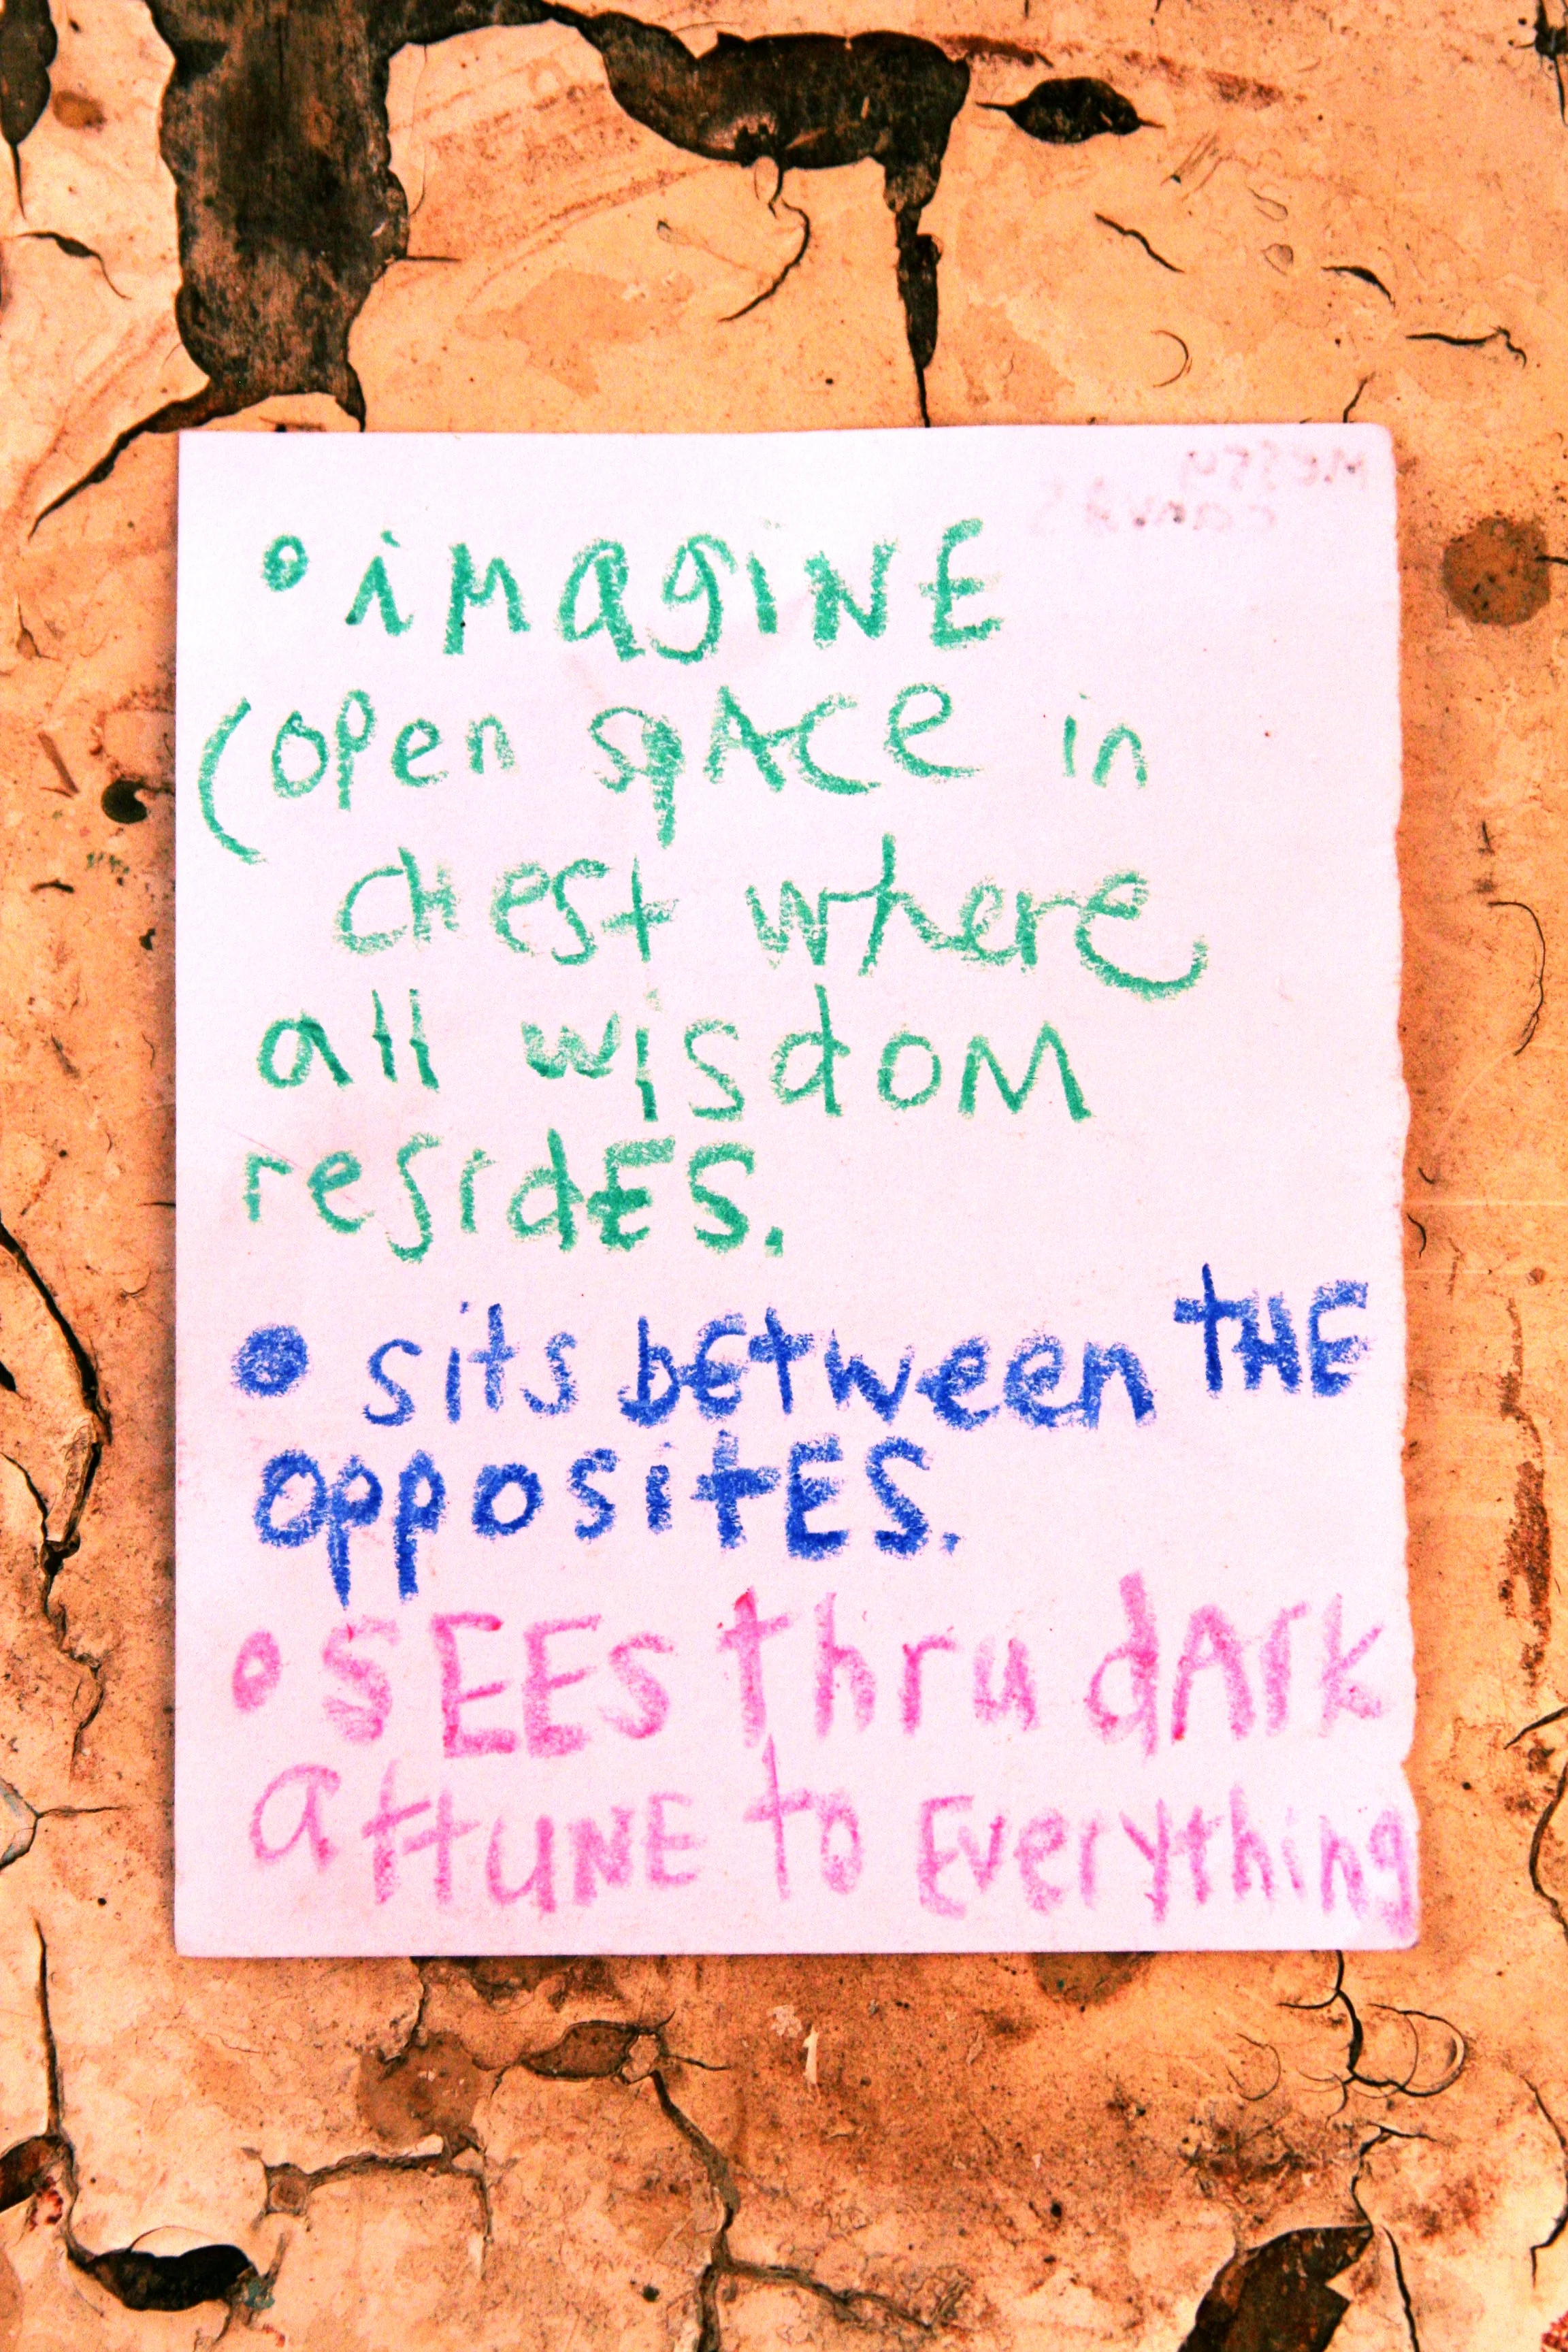 Messy
canvas
• iMagiNE
(open spACe in
cHest where
all wisdoM
residES.
• sits bEtween tHE
oppositES.
• sEEs thru dArk
attUNE to Everything